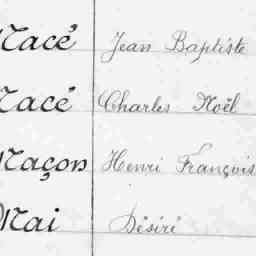 Macé Jean Baptiste
Macé Charles Noël
Maçon Henri François
Mai Désiré